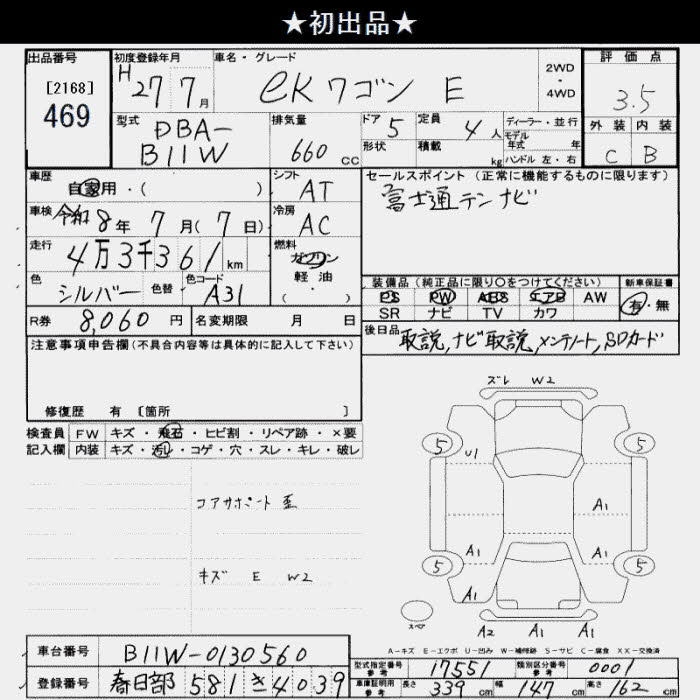 ★初出品★
出品番号
[2168]
469
初度登録年月
H27 7月
車名・グレード
eKワゴン E
2WD
・
4WD
評価点
3.5
外装 内装
C B
型式
DBA-
B11W
排気量
660 cc
ドア 5
形状
定員 4人
積載 kg
ディーラー・並行
モデル
年式 年
ハンドル 左・右
車歴
自家用・( )
シフト
AT
セールスポイント (正常に機能するものに限ります)
富士通テン ナビ
車検 令和8年 7月(7日)
冷房
AC
走行
4万3千361km
燃料
ガソリン
軽・油
・
( )
色
シルバー
色替
色コード
A31
装備品 (純正品に限り○をつけてください)
PS PW ABS エアB AW
SR ナビ TV カワ
新車保証書
有・無
R券 8,060円
名変期限 月 日
後日品
取説, ナビ取説, メンテノート, SDカード
注意事項申告欄(不具合内容等は具体的に記入して下さい)
修復歴 有 [箇所 ]
検査員
記入欄
FW キズ・飛石・ヒビ割・リペア跡・×要
内装 キズ・汚れ・コゲ・穴・スレ・キレ・破レ
コアサポート歪
キズ E W2
ズレ W2
5
U1
5
A1
A1
A1
5
5
A1
A1
スペア
A2 A1 A1
A-キズ E-エクボ U-凹み W-補修跡 S-サビ C-腐食 XX-交換済
車台番号
B11W-0130560
登録番号
春日部 581 き 4039
型式指定番号
参考
17551
類別区分番号
参考
0001
車庫証明用
参考
長さ 339 cm
幅 147 cm
高さ 162 cm